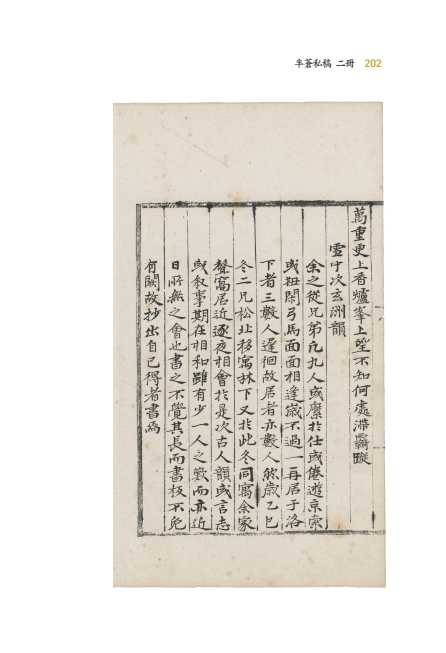 半蒼私稿 二冊 202
萬重更上香爐峯上望不知何處滯羈蹤
雪中次玄洲韻
余之從兄弟凡九人或縻於仕或倦遊京索
或狃閑弓馬面面相逢歲不過一再居于洛
下者三數人遲徊故居者亦數人然歲乙巳
冬二兄松北移寓林下又於此冬同寓余家
聲寓居近逐夜相會於是次古人韻或言志
或敘事期在相和雖有少一人之數而亦近
日所無之會也書之不覺其長而書板不免
有闕故抄出自己得者書焉